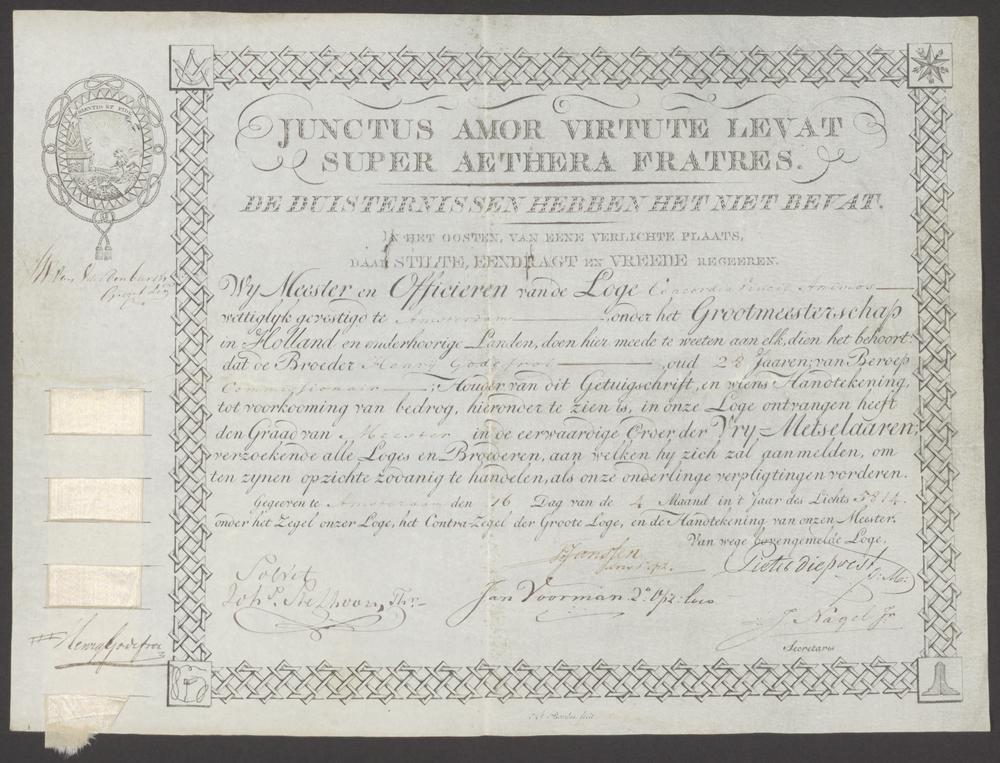 JUNCTUS AMOR VIRTUTE LEVAT
SUPER AETHERA FRATRES.
DE DUISTERNISSEN HEBBEN HET NIET BEVAT.
IN HET OOSTEN, VAN EENE VERLICHTE PLAATS,
DAAR STILTE, EENDRAGT EN VREEDE REGEEREN.
Wy Meester en Officieren van de Loge Concordia Vincit Animos
wettiglyk gevestigd te Amsterdam onder het Grootmeesterschap
in Holland en onderhoorige Landen, doen hier meede te weeten aan elk, dien het behoort:
dat de Broeder Henry Godefroi oud 28 Jaaren; van Beroep
Commissionair; Houder van dit Getuigschrift, en wiens Handtekening,
tot voorkooming van bedrog, hieronder te zien is, in onze Loge ontvangen heeft
den Graad van Meester in de eerwaardige Order der Vry-Metselaaren;
verzoekende alle Loges en Broederen, aan welken hy zich zal aanmelden, om
ten zynen opzichte zodanig te handelen, als onze onderlinge verpligtingen vorderen.
Gegeeven te Amsterdam den 16 Dag van de 4 Maand in 't Jaar des Lichts 5814.
onder het Zegel onzer Loge, het Contra-Zegel der Groote Loge, en de Handtekening van onzen Meester.
Van wege bovengemelde Loge.
Janssen
Pieter diepvest
G: M:
Jan Voorman 2e Opz: loco
J. Nagel Jr
Secretaris
Henry Godefroi